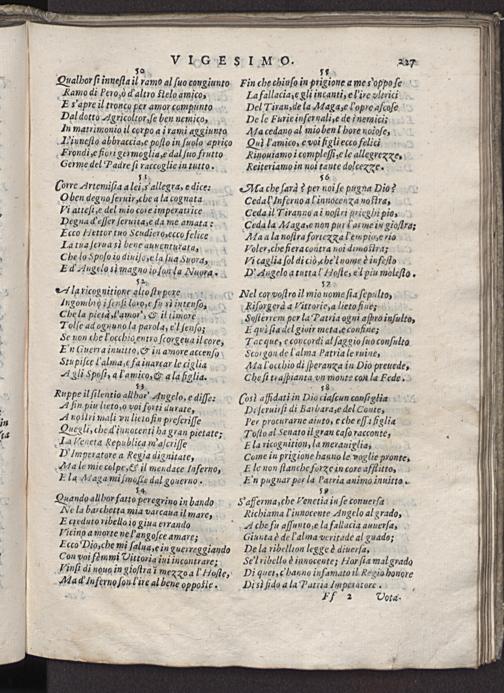 VIGESIMO. 227
50
Qualhor si innesta il ramo al suo congiunto
Ramo di Pero, ò d'altro stelo amico,
E s'apre il tronco per amor compunto
Dal dotto Agricoltor, se ben nemico,
In matrimonio il corpo a i rami aggiunto
L'innesto abbraccia, e posto in suolo aprico
Frondi, e fiori germoglia, e dal suo frutto
Germe del Padre si raccoglie in tutto.
51
Corre Artemisia a lei, s'allegra, e dice:
O ben degno seruir, che a la cognata
Vi attesi, e del mio core imperatrice
Degna d'esser seruita, e da me amata:
Ecco Hettor tuo Scudiero, ecco felice
La tua serua sì bene auuenturata,
Che lo Sposo iò diuiso, e la sua Suora,
E d'Angelo sì magno io son la Nuora.
52
A la ricognitione alto stupore
Ingombrò i sensi loro, e fù sì intenso,
Che la pietà, l'amor, & il timore
Tolse ad ognuno la parola, e'l senso;
Se non che l'occhio entro scorgeua il core,
E'n Guerra inuitto, & in amore accenso
Stupisce l'alma, e fa inarcar le ciglia
A gli Sposi, a l'amico, & a la figlia.
53
Ruppe il silentio allhor Angelo, e disse:
A fin più lieto, o voi forti durate,
A nostri mali vn lieto fin prescrisse
Quegli, che d'innocenti ha gran pietate;
La Veneta Republica m'ascrisse
D'Imperatore a Regia dignitate,
Ma le mie colpe, & il mendace Inferno,
E la Maga mi smosse dal gouerno.
54
Quando allhor fatto peregrino in bando
Ne la barchetta mia varcaua il mare,
E creduto ribello io giua errando
Vicino a morte ne l'angosce amare;
Ecco Dio, che mi salua, e in guerreggiando
Con voi femmi Vittoria iui incontrare;
Vinsi di nouo in giostra i mezzo a l'Hoste,
Ma d'Inferno son l'ire al bene opposte.
55
Fin che chiuso in prigione a me s'oppose
La fallacia, e gli incanti, e l'ire vltrici
Del Tiran, de la Maga, e l'opre ascose
De le Furie infernali, e de i nemici;
Ma cedano al mio ben l'hore noiose,
Quì l'amico, e voi figli ecco felici
Rinouiamo i complessi, e le allegrezze,
Reiteriamo in noi tante dolcezze.
56
Ma che sarà? per noi se pugna Dio?
Ceda l'Inferno a l'innocenza nostra,
Ceda il Tiranno ai nostri prieghi pio,
Ceda la Maga, e non pur l'arme in giostra;
Ma a la nostra fortezza l'empio, e rio
Voler, che fiera contra noi dimostra;
Vi caglia sol di ciò, che'l nome è infesto
D'Angelo a tutta l'Hoste, e'l più molesto.
57
Nel cor vostro il mio nome sia sepulto,
Risorgerà a Vittorie, a lieto fine;
Sosterrem per la Patria ogni aspro insulto,
E quì sia del gioir meta, e confine;
Tacque, e concordi al saggio suo consulto
Scorgon de l'alma Patria le ruine,
Ma l'occhio di speranza in Dio preuede,
Che si traspianta vn monte con la Fede.
58
Così affidati in Dio ciascun consiglia
De seruisij di Barbara, e del Conte,
Per procurarne aiuto, e che essi a figlia
Tosto al Senato il gran caso racconte,
E la ricognition, la merauiglia,
Come in prigione hanno le voglie pronte,
E le non stanche forze in core afflitto,
E'n pugnar per la Patria animo inuitto.
59
S'afferma, che Venetia in se conuersa
Richiama l'innocente Angelo al grado,
A che fu assunto, e la fallacia auuersa,
Giunta è de l'alma veritade al guado;
De la ribellion legge è diuersa,
Se'l ribello è innocente; Hor sia mal grado
Di quei, c'hanno infamato il Regio honore
Di sì fido a la Patria Imperatore.
Ff 2 Vota-